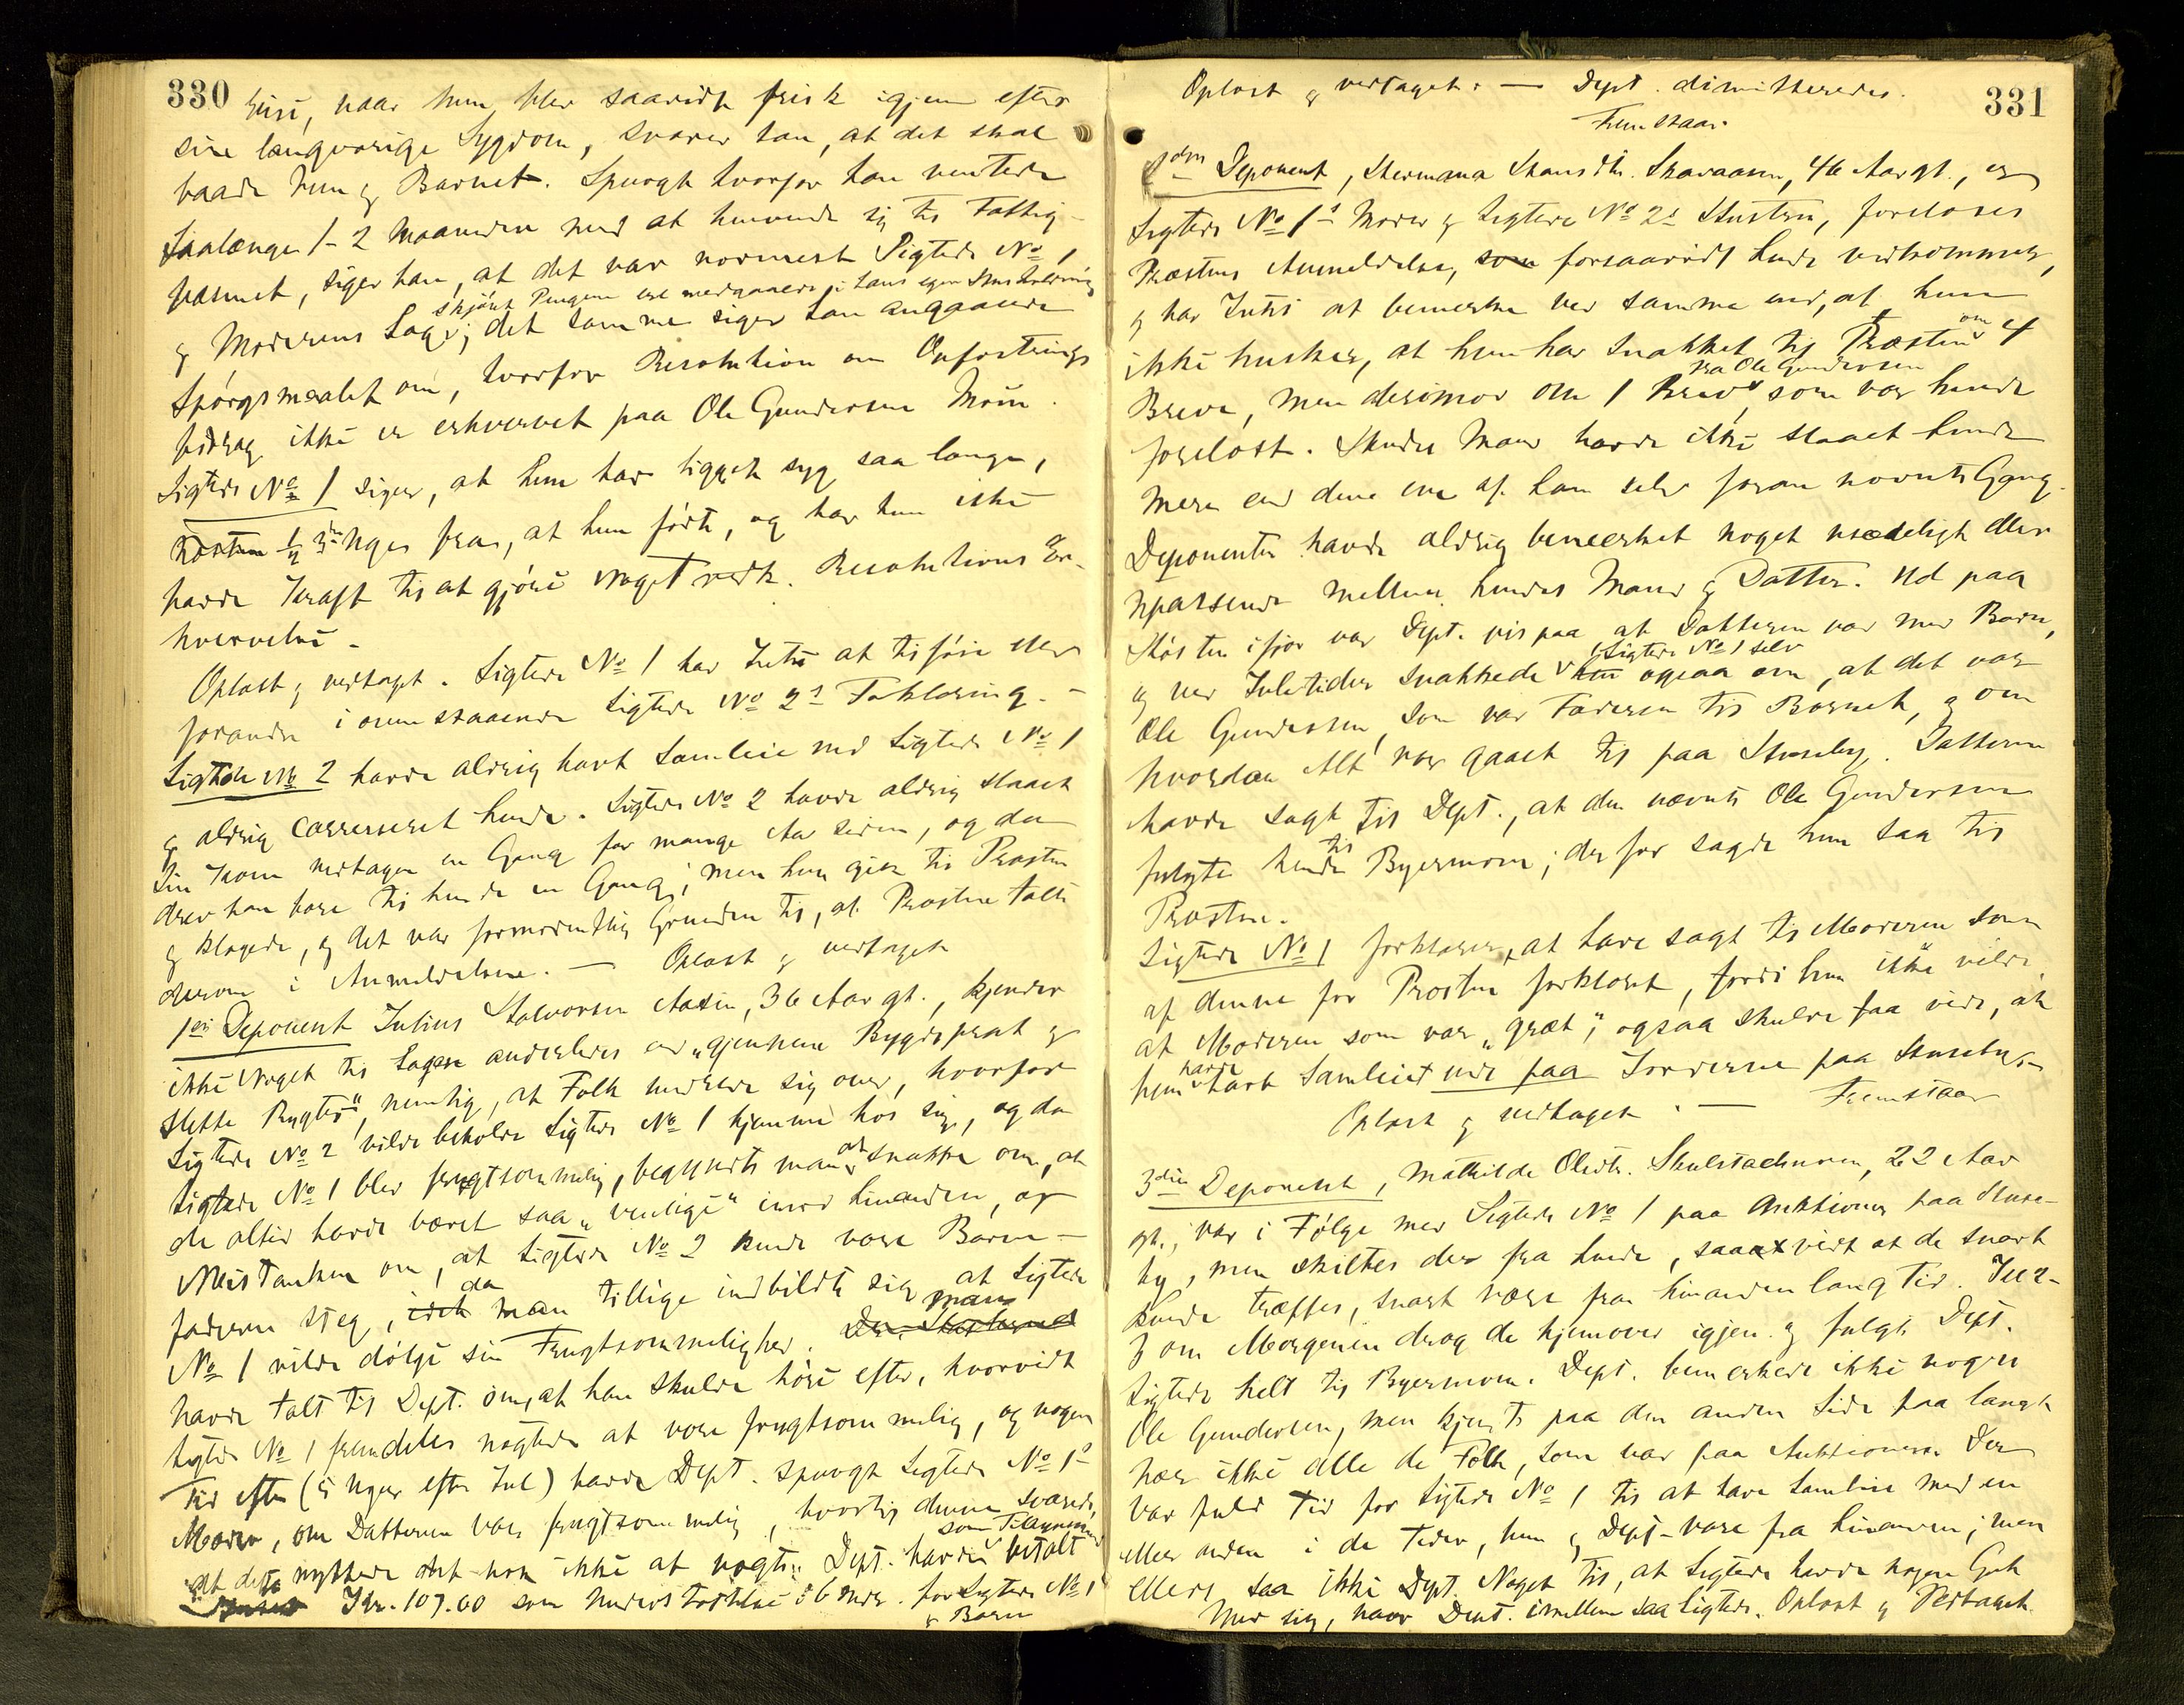 330
huse, naar hun blev saavidt frisk igjen efter
sin langvarige Sygdom, svarer han, at det skal
baade hun og Barnet. Spurgt hvorfor han ventede
saalænge 1-2 Maaneder med at henvende sig til Fattig-
væsenet, siger han, at det var nærmest Sigtede No 1
skjønt Pengene vil medgaaede i hans egen Husholdning
og Moderens Sag; det samme siger han angaaende
Spørgsmaalet om, hvorfor Resolution om Opfostrings
bidrag ikke er erhvervet paa Ole Gundersen Moen.
Sigtede No 1 siger, at hun har ligget syg saa længe,
Uger fra, at hun fødte, og har hun ikke
havde Kraft til at gjøre Noget vedk. Resolutions Er-
hvervelse -
Oplæst og vedtaget. Sigtede No 1 har Intet at tilføie eller
forandre i ovenstaaende Sigtede No 2s Forklaring. -
Sigtede No 2 havde aldrig havt Samleie med Sigtede No 1
og aldrig careseret hende. Sigtede No 2 havde aldrig slaaet
Sin Kone undtagen en Gang for mange Aar siden, og da
drev han bare til hende en Gang; men hun gik til Præsten
og klagede, og det var formodentlig Grunden til, at Præsten talte
derom i Anmeldelsen. — Oplæst og vedtaget
1ste Deponent Julius Halvorsen Aasen, 36 Aar gl., kjender
ikke Noget til Sagen anderledes end "gjennem Bygdeprat og
slette Rygter", nemlig, at Folk undrede sig over, hvorfor
Sigtede No 2 vilde beholde Sigtede No 1 hjemme hos sig, og da
Sigtede No 1 blev frugtsommelig, begyndte man at snakke om, at
de altid havde været saa "venlige" imod hinanden, og
Mistanken om, at Sigtede No 2 kunde være Barne-
faderen steg, idet da man tillige indbildte sig, at Sigtede
No 1 vilde dølge sin Frugtsommelighed. man
havde talt til Dept. om, at han skulde høre efter, hvorvidt
Sigtede No 1 fremdeles nægtede at være frugtsommelig, og nogen
Tid efter (5 Uger efter Jul) havde Dept. spurgt Sigtede No 1s
Moder, om Datteren var frugtsommelig, hvortil denne svarede,
at det nyttede nok ikke at nægte. Dept. havde som betalt
Kr. 107.00 som Understøttelse i 6 Mdr. for Sigtede No 1
og Barn
331
Oplæst og vedtaget. — Dept. dimitteredes.
Fremstaar
2den Deponent, Hermana Hansdtr. Skaraasen, 46 Aar gl., er
Sigtede No 1s Moder og Sigtede No 2s Hustru, forelæses
Præstens Anmeldelse, som forsaavidt hende vedkommer,
og har Intet at bemerke ved samme end, at hun
ikke husker, at hun har snakket til Præsten om 4
Breve, men derimod om 1 Brev fra Ole Gundersen, som var hende
forelæst. Hendes Mand havde ikke slaaet hende
mere end den ene af ham selv foran nævnte Gang.
Deponenten havde aldrig bemerket noget usædeligt eller
upassende mellem hendes Mand og Datter. Ud paa
Høsten ifjor var Dept. vis paa, at Datteren var med Barn,
og ved Juletider snakkede Sigtede No 1 selv hun ogsaa om, at det var
Ole Gundersen, som var Faderen til Barnet, og om
hvordan Alt var gaaet til paa Huseby. Datteren
havde sagt til Dept., at den nævnte Ole Gundersen
fulgte hende til Byermoen; derfor sagde hun saa til
Præsten.
Sigtede No 1 forklarer, at have sagt til Moderen som
af denne for Præsten forklaret, fordi hun ikke vilde
at Moderen som var "græt", ogsaa skulde faa vide, at
hun havde havt Samleiet ude paa Jorderne paa Huseby. -
Oplæst og vedtaget. — Fremstaar
3die Deponent, Mathilde Olsdtr. Skulstadmoen, 22 Aar
gl., var i Følge med Sigtede No 1 paa Auktionen paa Huse-
by, men skiltes der fra hende, saavidt at de snart
kunde træffes, snart være fra hinanden lang Tid. Kl 2-
3 om Morgenen drog de hjemover igjen og fulgte Dept.
Sigtede helt til Byermoen. Dept. bemerkede ikke nogen
Ole Gundersen, men kjendte paa den anden Side paa langt
nær ikke alle de Folk, som var paa Auktionen. Der
var fuld Tid for Sigtede No 1 til at have Samleie med en
eller anden i de Tider, hun og Dept. vare fra hinanden; men
ellers saa ikke Dept. Noget til, at Sigtede havde nogen Gut
med sig, naar Dept. imellem saa Sigtede. Oplæst og Vedtaget.